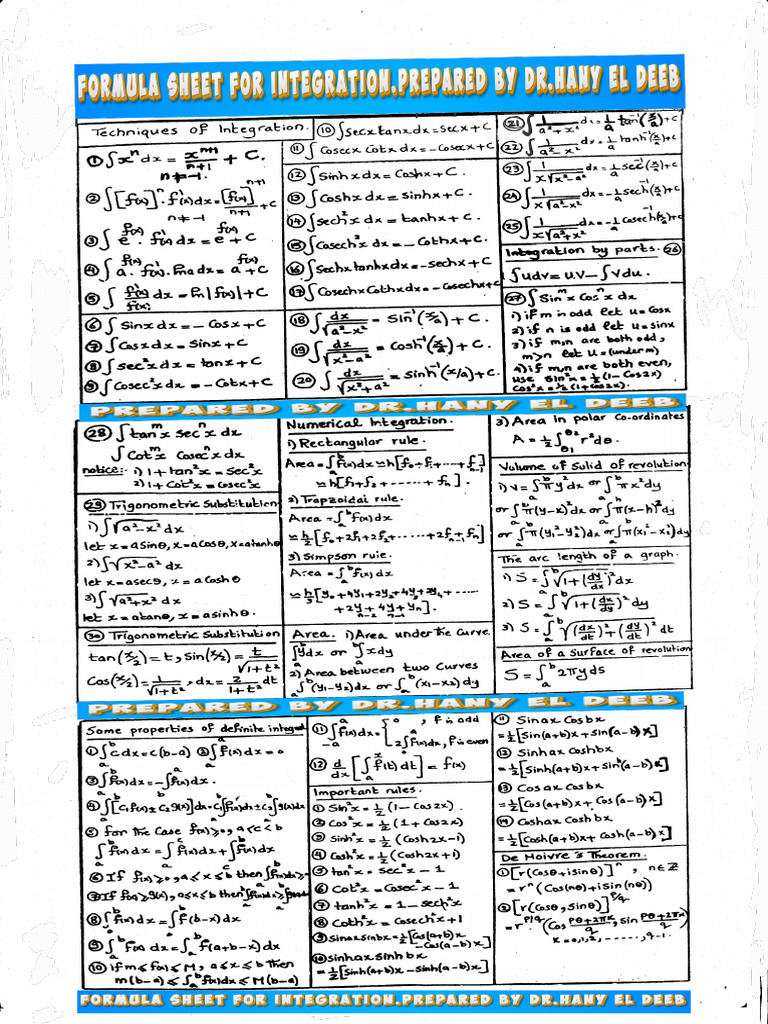 FORMULA SHEET FOR INTEGRATION.PREPARED BY DR.HANY EL DEEB
Techniques of Integration.
① ∫xⁿdx = xⁿ⁺¹/(n+1) + C.
n≠-1.
② ∫[f(x)]ⁿ.f'(x)dx = [f(x)]ⁿ⁺¹/(n+1) + C
n≠-1
③ ∫e^f(x).f'(x)dx = e^f(x) + C
④ ∫a^f(x).f'(x).lna dx = a^f(x) + C
⑤ ∫f'(x)/f(x) dx = ln|f(x)| + C
⑥ ∫Sinx dx = -Cosx + C
⑦ ∫Cosx dx = Sinx + C
⑧ ∫sec²x dx = tanx + C
⑨ ∫Cosec²x dx = -Cotx + C
⑩ ∫secx tanx dx = secx + C
⑪ ∫Cosecx Cotx dx = -Cosecx + C
⑫ ∫Sinhx dx = Coshx + C
⑬ ∫Coshx dx = sinhx + C.
⑭ ∫sech²x dx = tanhx + C.
⑮ ∫Cosech²x dx = -Cothx + C.
⑯ ∫Sechx tanhx dx = -sechx + C
⑰ ∫Cosechx Cothx dx = -Cosechx + C
⑱ ∫dx/√(a²-x²) = Sin⁻¹(x/a) + C.
⑲ ∫dx/√(x²-a²) = Cosh⁻¹(x/a) + C.
⑳ ∫dx/√(x²+a²) = Sinh⁻¹(x/a) + C.
㉑ ∫1/(a²+x²) dx = 1/a tan⁻¹(x/a) + C
㉒ ∫1/(a²-x²) dx = 1/a tanh⁻¹(x/a) + C
㉓ ∫1/(x√(x²-a²)) dx = 1/a sec⁻¹(x/a) + C
㉔ ∫1/(x√(a²-x²)) dx = -1/a sech⁻¹(x/a) + C
㉕ ∫1/(x√(a²+x²)) dx = -1/a Cosech⁻¹(x/a) + C
Integration by parts. ㉖
∫udv = u.v - ∫vdu.
㉗ ∫Sinᵐx Cosⁿx dx
1) if m is odd let u = Cosx
2) if n is odd let u = sinx
3) if m,n are both odd,
m>n let u = (under m)
4) if m,n are both even,
use Sin²x = ½(1-Cos2x)
Cos²x = ½(1+Cos2x).
PREPARED BY DR.HANY EL DEEB
㉘ ∫tanᵐx secⁿx dx
∫Cotᵐx Cosecⁿx dx
notice: 1) 1+tan²x = Sec²x
2) 1+Cot²x = Cosec²x
㉙ Trigonometric Substitution
1) ∫√(a²-x²) dx
let x=asinθ, x=aCosθ, x=atanhθ
2) ∫√(x²-a²) dx
let x=asecθ, x=aCoshθ
3) ∫√(a²+x²) dx
let x=atanθ, x=asinhθ.
㉚ Trigonometric Substitution
tan(x/2) = t, Sin(x/2) = t/√(1+t²)
Cos(x/2) = 1/√(1+t²), dx = 2/(1+t²) dt
Numerical Integration.
1) Rectangular rule.
Area = ∫ₐᵇf(x)dx ≃ h[f₀+f₁+....+fₙ₋₁]
≃ h[f₁+f₂+......+fₙ].
2) Trapzoidal rule.
Area = ∫ₐᵇf(x)dx
≃ h/2[f₀+2f₁+2f₂+......+2fₙ₋₁+fₙ]
3) Simpson rule.
Area = ∫ₐᵇf(x)dx
≃ h/3[y₀+4y₁+2y₂+4y₃+2y₄+.....
+2yₙ₋₂+4yₙ₋₁+yₙ].
Area. 1) Area under the Curve.
∫ₐᵇydx or ∫ₐᵇxdy
2) Area between two Curves
∫ₐᵇ(y₁-y₂)dx or ∫ₐᵇ(x₁-x₂)dy
3) Area in polar Co-ordinates
A = ½∫θ₁^θ₂ r²dθ.
Volume of Solid of revolution
1) V = ∫ₐᵇπy²dx or ∫ₐᵇπx²dy
or ∫ₐᵇπ(y-k)²dx or ∫ₐᵇπ(x-h)²dy
or ∫ₐᵇπ(y₁²-y₂²)dx or ∫ₐᵇπ(x₁²-x₂²)dy
The arc length of a graph.
1) S = ∫ₐᵇ√(1+(dy/dx)²) dx
2) S = ∫ₐᵇ√(1+(dx/dy)²) dy
3) S = ∫ₐᵇ√((dx/dt)²+(dy/dt)²) dt
Area of a Surface of revolution
S = ∫ₐᵇ2πyds
PREPARED BY DR.HANY EL DEEB
Some properties of definite integral
① ∫ₐᵇCdx = C(b-a) ② ∫ₐᵃf(x)dx = 0
③ ∫ₐᵇf(x)dx = -∫f(x)dx.
④ ∫ₐᵇ[C₁f(x)±C₂g(x)]dx = C₁∫f(x)dx ± C₂∫g(x)dx
⑤ for the Case f(x)≥0, a<c<b
∫ₐᵇf(x)dx = ∫f(x)dx + ∫f(x)dx
⑥ If f(x)≥0, a≤x≤b then ∫ₐᵇf(x)dx≥0
⑦ If f(x)≥g(x), a≤x≤b then ∫f(x)dx≥∫g(x)dx
⑧ ∫₀ᵇf(x)dx = ∫₀ᵇf(b-x)dx
⑨ ∫ₐᵇf(x)dx = ∫ₐᵇf(a+b-x)dx
⑩ if m≤f(x)≤M, a≤x≤b then
m(b-a) ≤ ∫ₐᵇf(x)dx ≤ M(b-a)
⑪ ∫₋ₐᵃf(x)dx = { 0, f is odd
2∫₀ᵃf(x)dx, f is even
⑫ d/dx[∫ₐˣf(t)dt] = f(x)
Important rules.
① Sin²x = ½(1-Cos2x).
② Cos²x = ½(1+Cos2x)
③ Sinh²x = ½(Cosh2x-1)
④ Cosh²x = ½(Cosh2x+1)
⑤ tan²x = sec²x-1
⑥ Cot²x = Cosec²x-1
⑦ tanh²x = 1-sech²x
⑧ Coth²x = Cosech²x+1
⑨ sinaxsinbx = ½[Cos(a+b)x
-Cos(a-b)x].
⑩ sinhaxsinhbx
= ½[Sinh(a+b)x-Sinh(a-b)x].
⑪ Sinax Cosbx
= ½[Sin(a+b)x+Sin(a-b)x]
⑫ Sinhax Coshbx
= ½[Sinh(a+b)x+Sinh(a-b)x]
⑬ Cosax Cosbx
= ½[Cos(a+b)x+Cos(a-b)x]
⑭ Coshax Coshbx
= ½[Cosh(a+b)x+Cosh(a-b)x]
De Moivre's Theorem.
① [r(Cosθ+isinθ)]ⁿ, n∈Z
= rⁿ(Cos(nθ)+isin(nθ))
② [r(Cosθ,sinθ)]^p/q
= r^p/q (Cos (pθ+2πk)/q, sin (pθ+2πk)/q)
k=0,1,2,......,q-1.
FORMULA SHEET FOR INTEGRATION.PREPARED BY DR.HANY EL DEEB